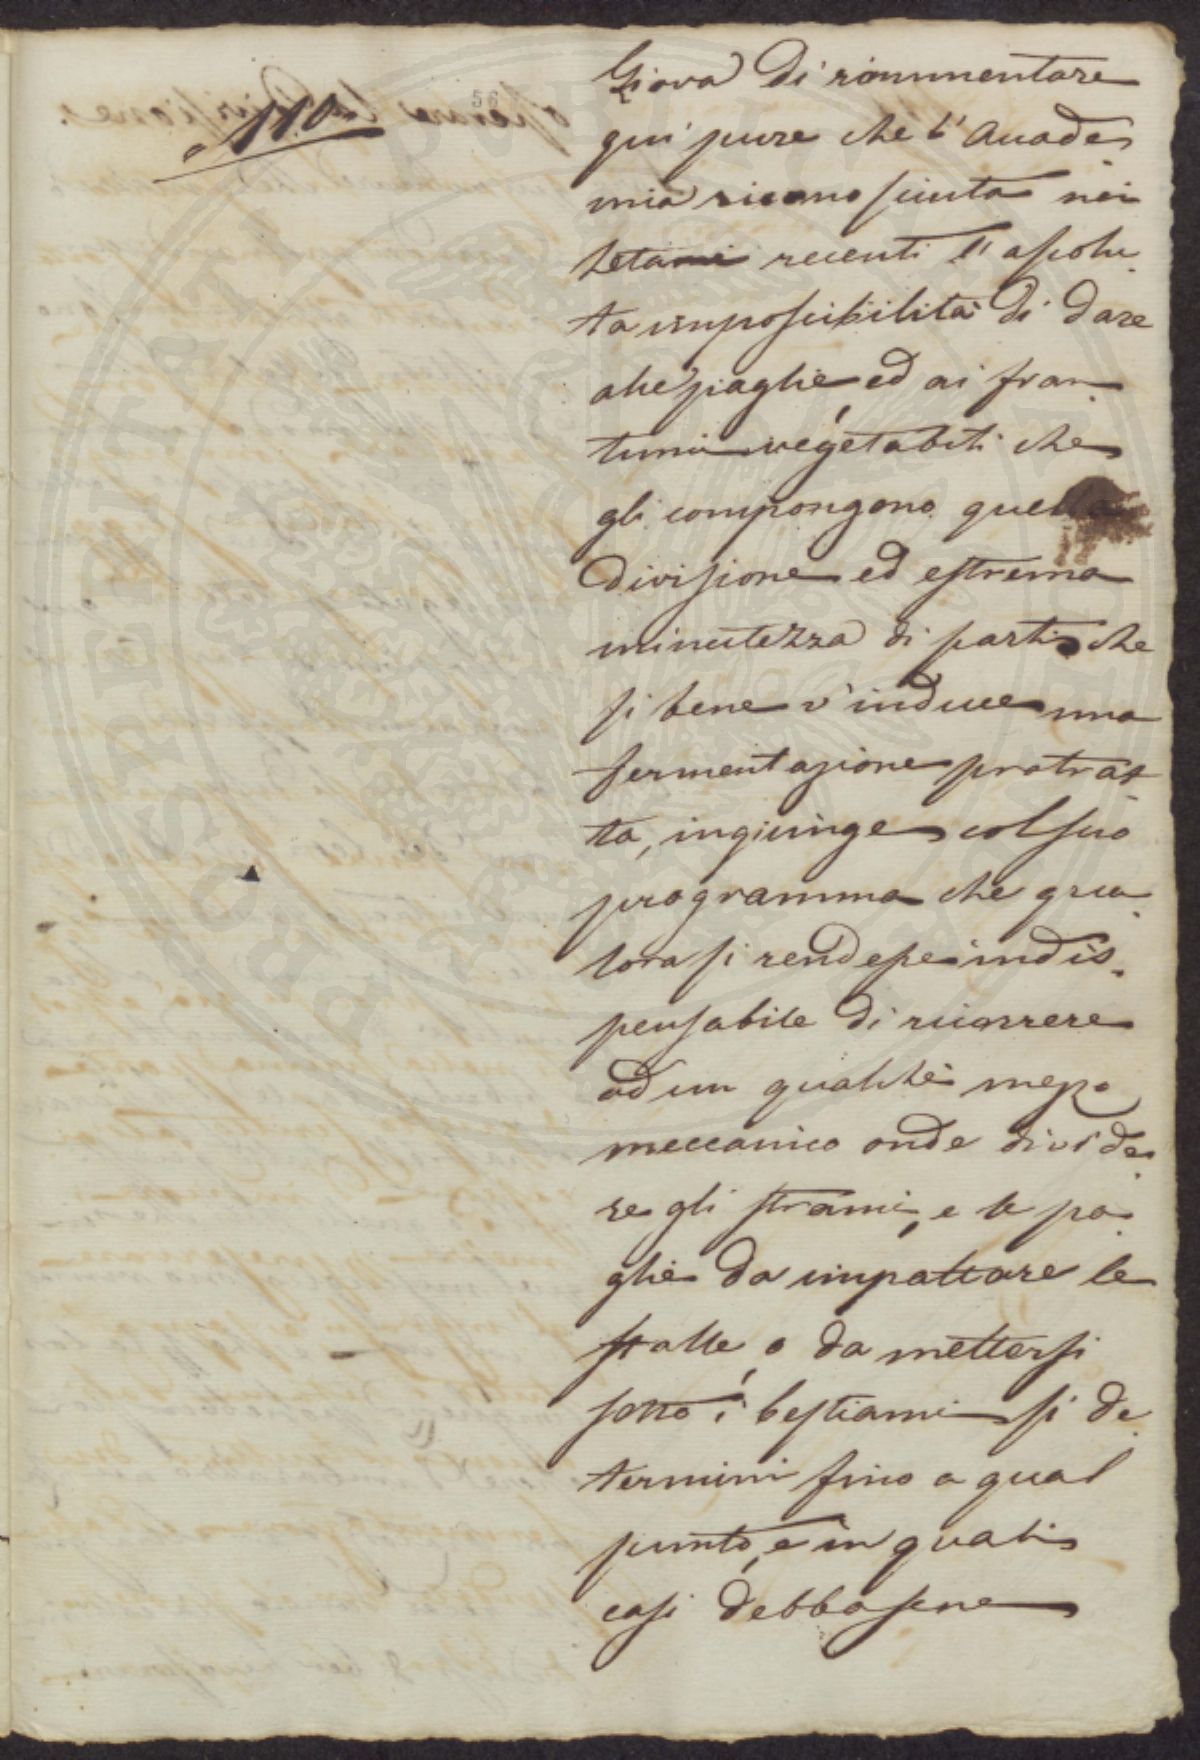 56
Giova di rammentare
qui pure che l'Accade,
mia riconosciuta nei
letami recenti l'assolu,
ta impossibilità di dare
alle paglie, ed ai fran,
tumi vegetabili che
gli compongono quella
divisione ed estrema
minutezza di parti che
si bene v'induce una
fermentazione protrat,
ta, ingiunge col suo
programma che qua,
lora si rendesse indis,
pensabile di ricorrere
ad un qualche mezzo
meccanico onde divide,
re gli strami, e le pa,
glie da impattare le
stalle, o da mettersi
sotto i bestiami si de,
termini fino a qual
punto, e in quali
casi debbasene